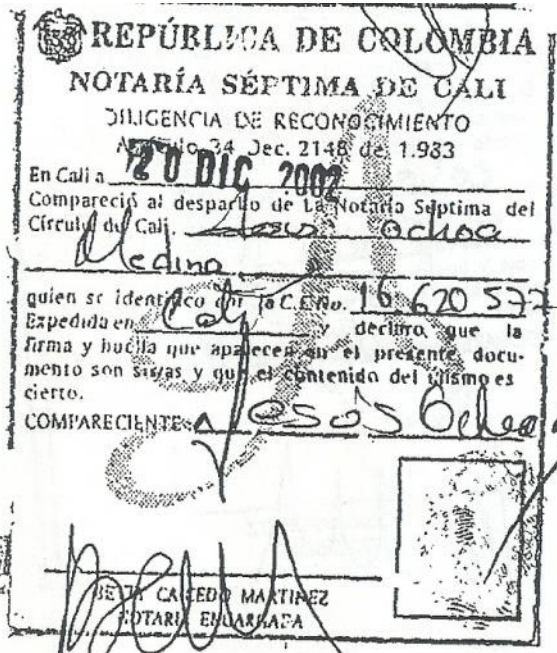 REPÚBLICA DE COLOMBIA
NOTARÍA SÉPTIMA DE CALI
DILIGENCIA DE RECONOCIMIENTO
Artículo 34 Dec. 2148 de 1.983
En Cali a 20 DIC 2002
Compareció al despacho de La Notaría Séptima del
Círculo de Cali. Jesus Ochoa
Medina
quien se identifico con la C.C.No. 16.620 577
Expedida en Cali y declaro que la
firma y huella que aparecen en el presente docu-
mento son suyas y que el contenido del mismo es
cierto.
COMPARECIENTE Jesos Ochoa
BETTY CAICEDO MARTINEZ
NOTARIA ENCARGADA